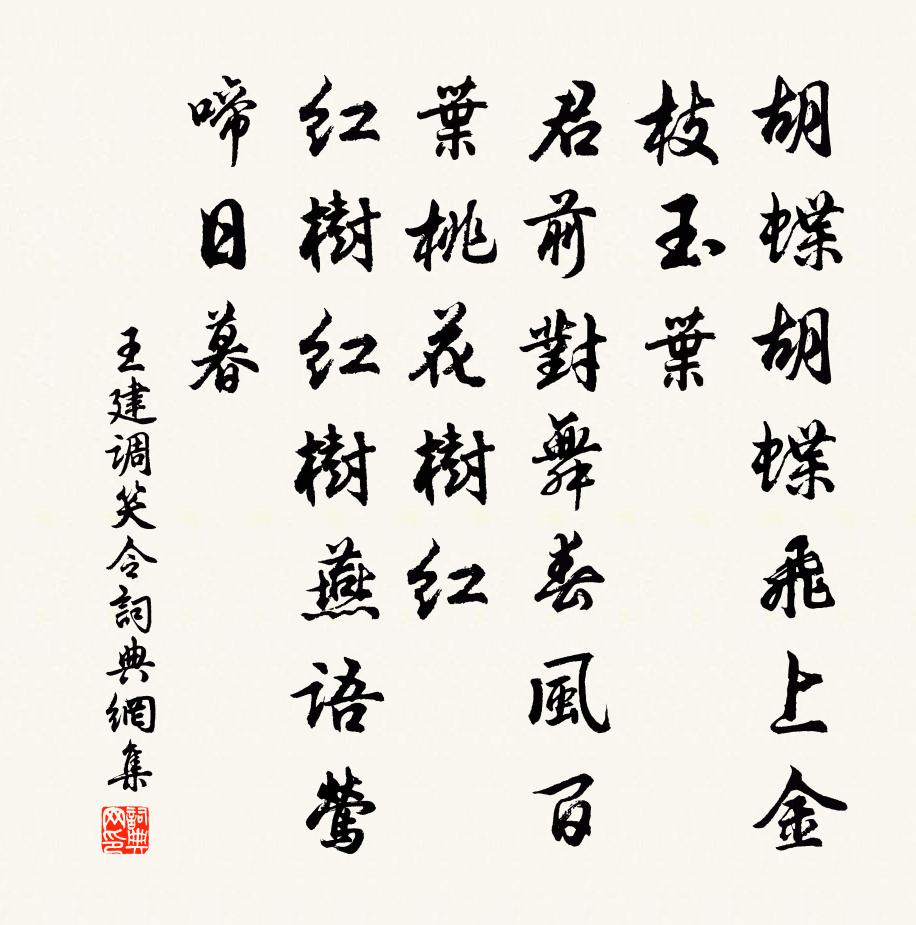 胡蝶胡蝶飛上金
枝玉葉
君前對舞春風百
葉桃花樹紅
紅樹紅樹燕語鶯
啼日暮
王建调笑令詞典網集
詞典网印